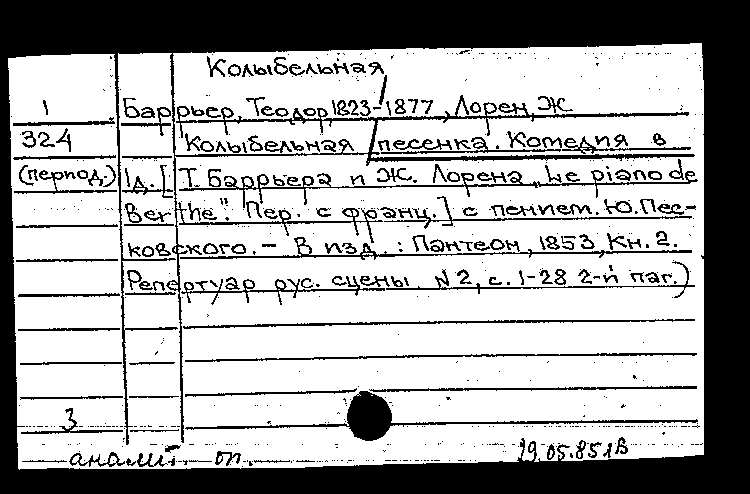 Колыбельная
1 Баррьер, Теодор 1823-1877, Лорен, Ж
324 Колыбельная песенка. Комедия в
(период.) 1 д. [Т. Баррьера и Ж. Лорена „Le piano de
Berthe". Пер. с франц.] с пением. Ю. Пес-
ковского. – В изд.: Пантеон, 1853, Кн. 2.
Репертуар рус. сцены N 2, с. 1-28 2-й паг.)
3
аналит. оп. 29.05.85